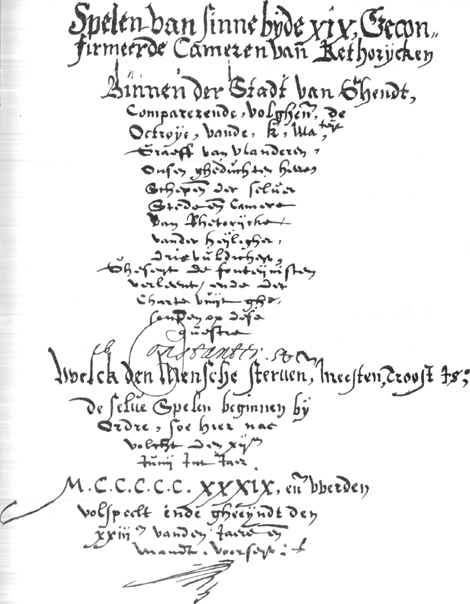 Spelen van sinne byde xix, Gecon„
firmeerde Cameren vañ Rethorijcken
Binnen der Stadt van Ghendt,
Comparerende, volgheñ, de
Octroye, vande, k, Ma, teyt
Graeff van vlanderen,
Onsen gheduchten heere
Schepeñ der selver
Stede eñ Camere
Van Rhetorijcke
vander heyligher,
drievuldicheyt
Gheseyt de fonteynisten
verleent, ende der
Charte vuijt ghe,
sonden op dese
questie
Welck den Mensche sterven, Meesten, Troost Is;
de selve Spelen beginnen by
Ordre, soe hier nae
volcht den xij
Junij Int Jaer.
M.C.C.C.C.C. XXXIX, eñ werden
volspeelt ende gheeyndt den
xxiij vanden Jaere eñ
Maendt voorseyt: